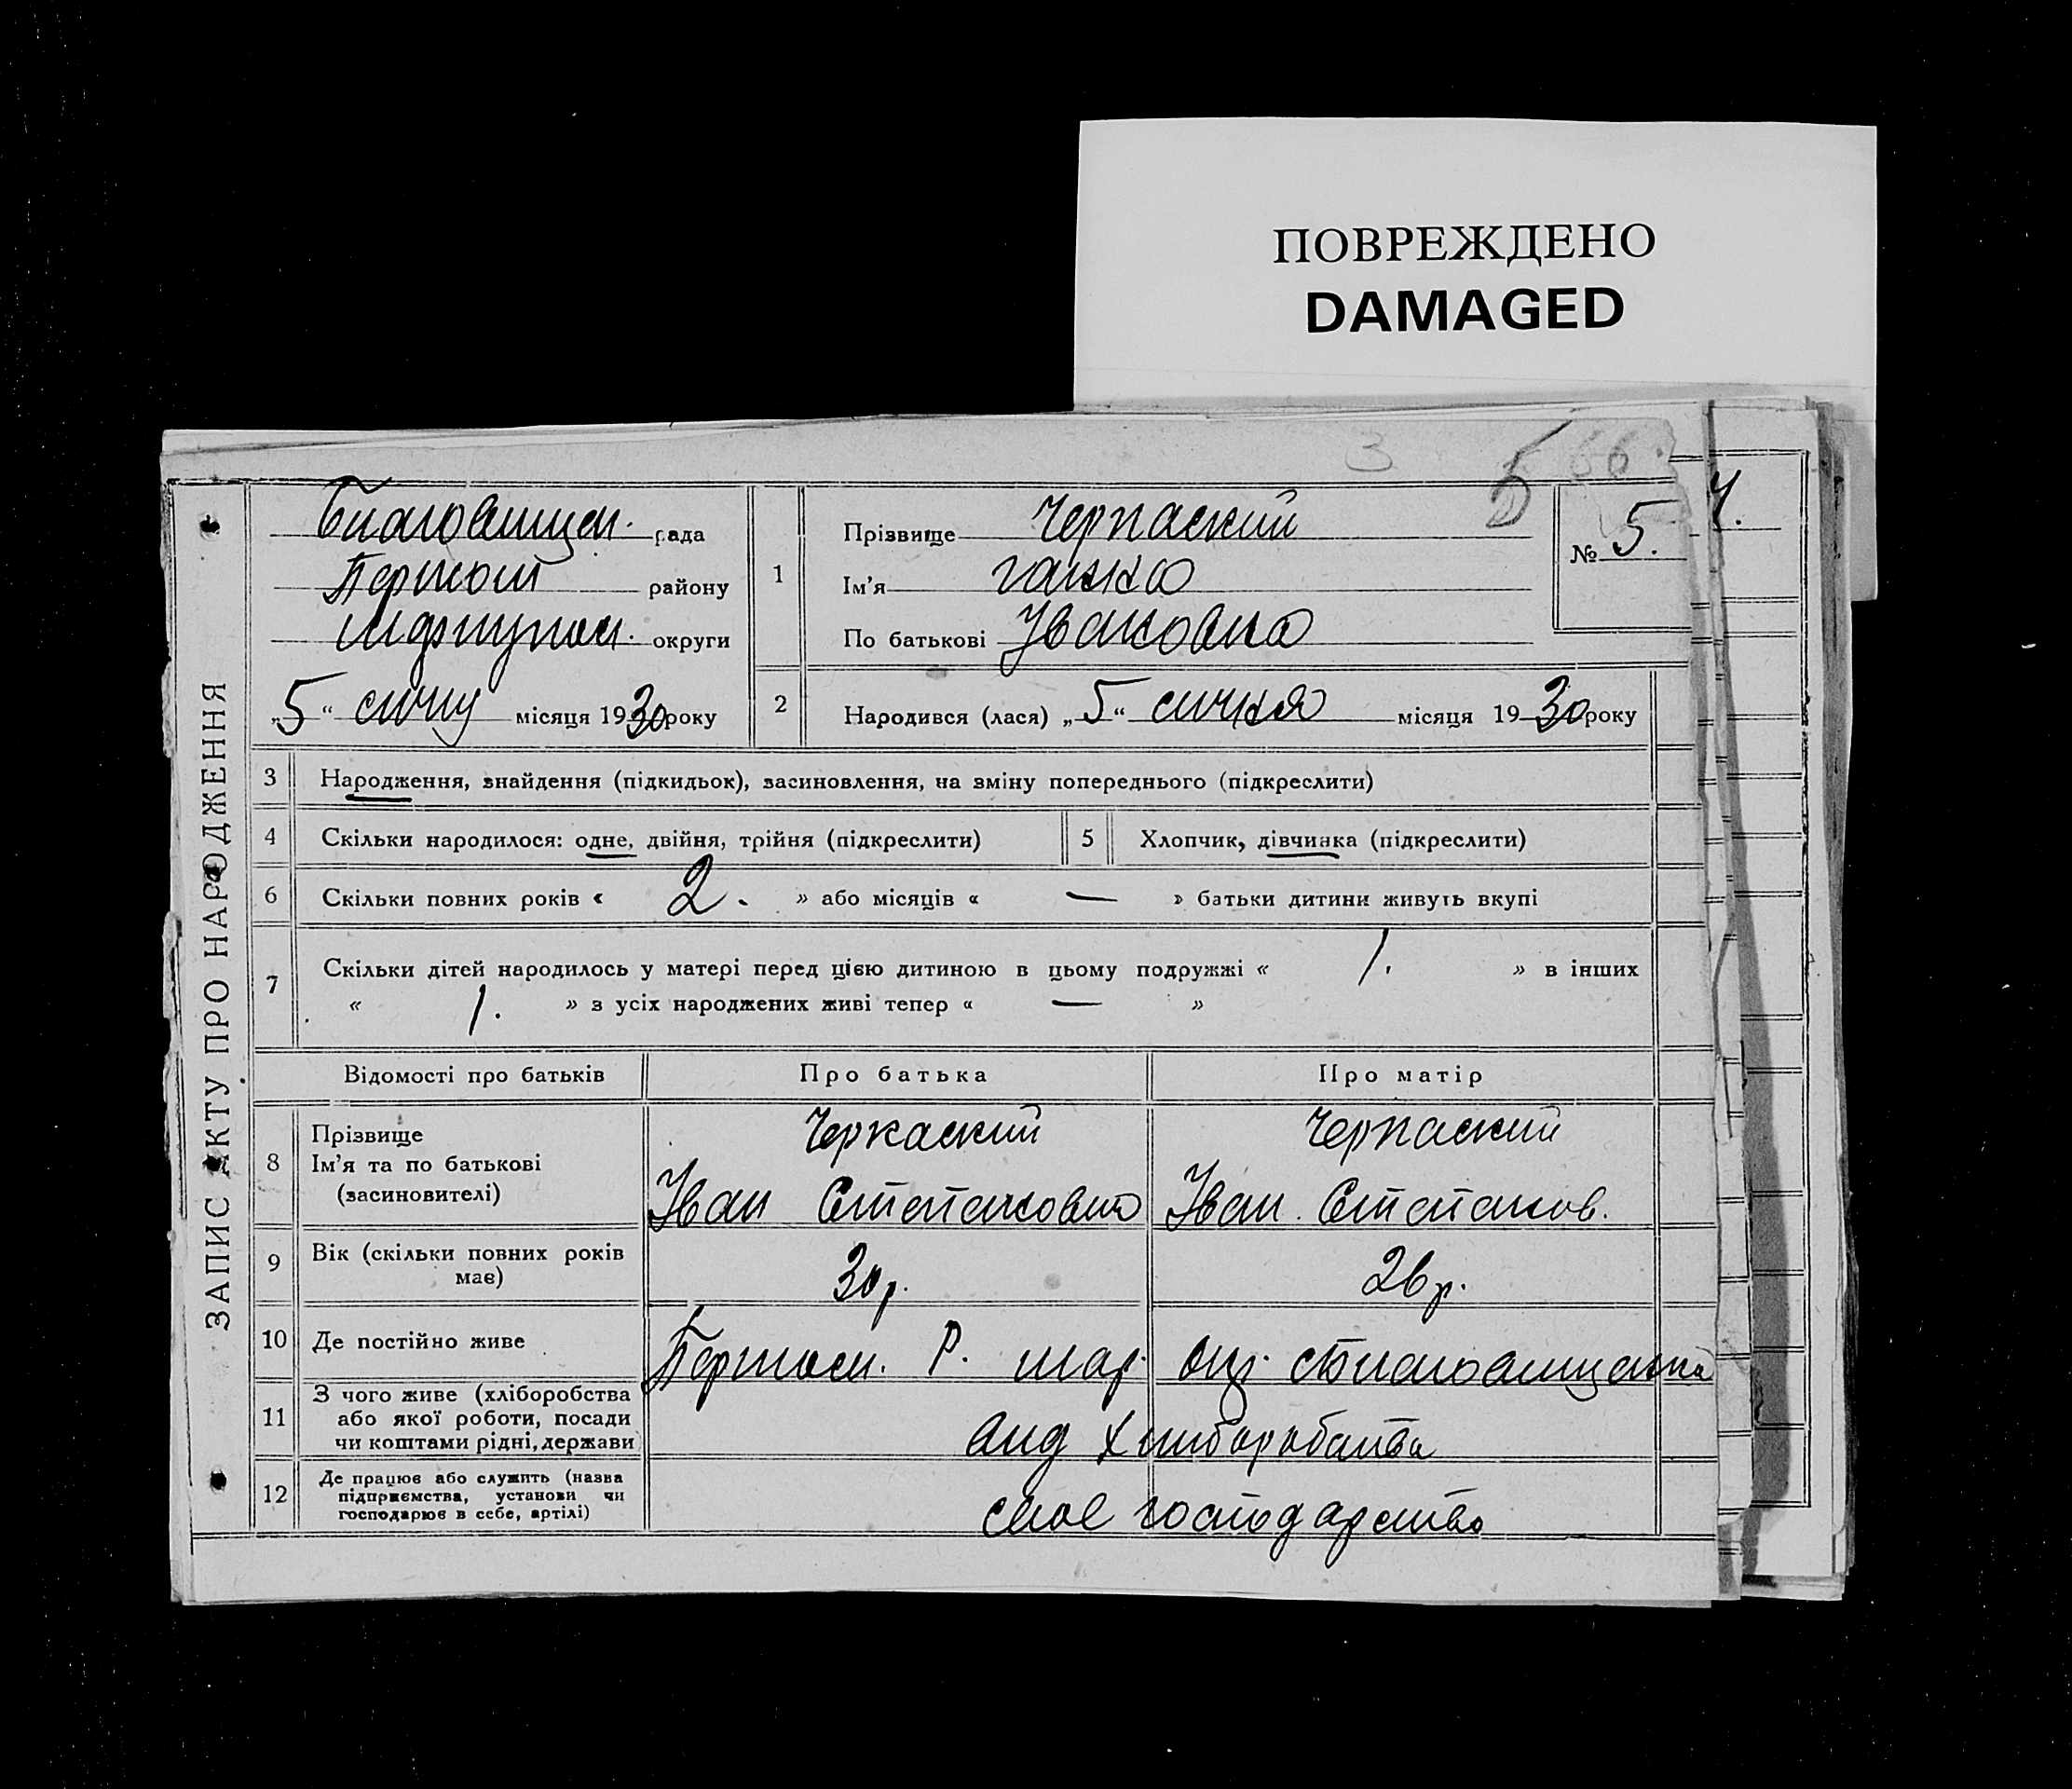 ПОВРЕЖДЕНО
DAMAGED
3 5 66.
ЗАПИС АКТУ ПРО НАРОДЖЕННЯ
Благовищен. рада
району
округи
„5“ сичну місяця 1930 року
1
Прізвище Черкаский
Ім'я ганна
По батькові Івановна
№ 5.
Ч.
2 Народився (лася) „5“ сичня місяця 1930 року
3 Народження, знайдення (підкидьок), засиновлення, на зміну попереднього (підкреслити)
4 Скільки народилося: одне, двійня, трійня (підкреслити) 5 Хлопчик, дівчинка (підкреслити)
6 Скільки повних років « 2. » або місяців « — » батьки дитини живуть вкупі
7 Скільки дітей народилось у матері перед цією дитиною в цьому подружжі « 1. » в інших
« 1. » з усіх народжених живі тепер « — »
Відомості про батьків Про батька Про матір
8 Прізвище Черкаский Черкаский
Ім'я та по батькові
(засиновителі) Іван Степанович Іван. Степанов.
9 Вік (скільки повних років
має) 30 р. 26 р.
10 Де постійно живе Р. мар. окр.
11 З чого живе (хліборобства
або якої роботи, посади
чи коштами рідні, держави від хлиборобства
12 Де працює або служить (назва
підприємства, установи чи
господарює в себе, артілі) своє господарство